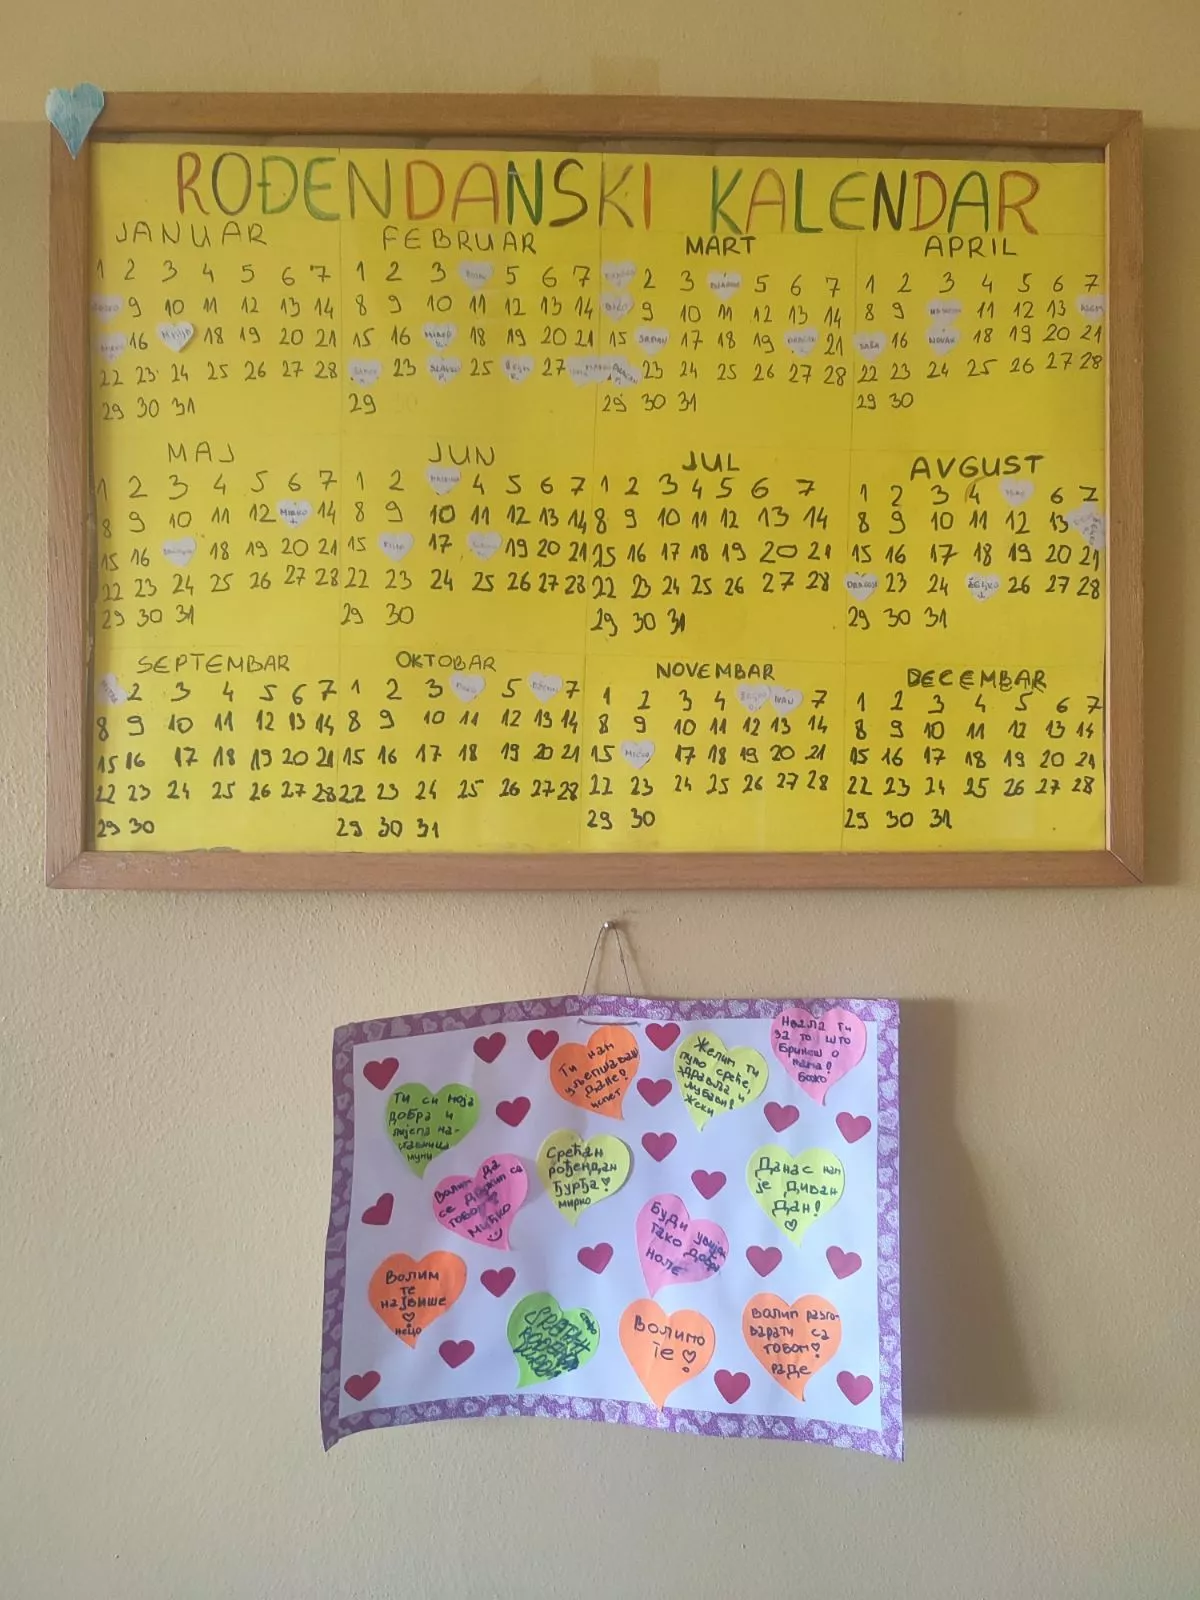 ROĐENDANSKI KALENDAR
JANUAR
1 2 3 4 5 6 7
9 10 11 12 13 14
16 18 19 20 21
22 23 24 25 26 27 28
29 30 31
FEBRUAR
1 2 3 5 6 7
8 9 10 11 12 13 14
15 16 18 19 20 21
23 SLAVKO 25 27
29
MART
2 3 5 6 7
9 10 11 12 13 14
15 17 18 19 21
23 24 25 26 27 28
29 30 31
APRIL
1 2 3 4 5 6 7
8 9 11 12 13
SAŠA 16 NOVAK 18 19 20 21
22 23 24 25 26 27 28
29 30
MAJ
1 2 3 4 5 6 7
8 9 10 11 12 MIRKO 14
15 16 18 19 20 21
22 23 24 25 26 27 28
29 30 31
JUN
1 2 4 5 6 7
8 9 10 11 12 13 14
15 17 19 20 21
22 23 24 25 26 27 28
29 30
JUL
1 2 3 4 5 6 7
8 9 10 11 12 13 14
15 16 17 18 19 20 21
22 23 24 25 26 27 28
29 30 31
AVGUST
1 2 3 4 6 7
8 9 10 11 12 13
15 16 17 18 19 20 21
23 24 ŽELJKO 26 27 28
29 30 31
SEPTEMBAR
2 3 4 5 6 7
8 9 10 11 12 13 14
15 16 17 18 19 20 21
22 23 24 25 26 27 28
29 30
OKTOBAR
1 2 3 5 7
8 9 10 11 12 13 14
15 16 17 18 19 20 21
22 23 24 25 26 27 28
29 30 31
NOVEMBAR
1 2 3 4 IVAN 7
8 9 10 11 12 13 14
15 17 18 19 20 21
22 23 24 25 26 27 28
29 30
DECEMBAR
1 2 3 4 5 6 7
8 9 10 11 12 13 14
15 16 17 18 19 20 21
22 23 24 25 26 27 28
29 30 31
Хвала ти
за то што
бринеш о
нама!
Божо
Ти нам
уљепшаваш
дане!
Желим ти
пуно среће,
здравља и
љубави!
Жеки
Ти си моја
добра и
лијепа на-
ставница
Срећан
рођендан
Ђурђа! ♡
Мирко
Данас нам
је диван
дан!
♡
Волим да
се дружим са
тобом
Мићко
Буди увијек
тако добра
Ноле
Волим
те
највише
♡
Нецо
Волимо
те ♡!
Волим разго-
варати са
тобом! ♡
Раде